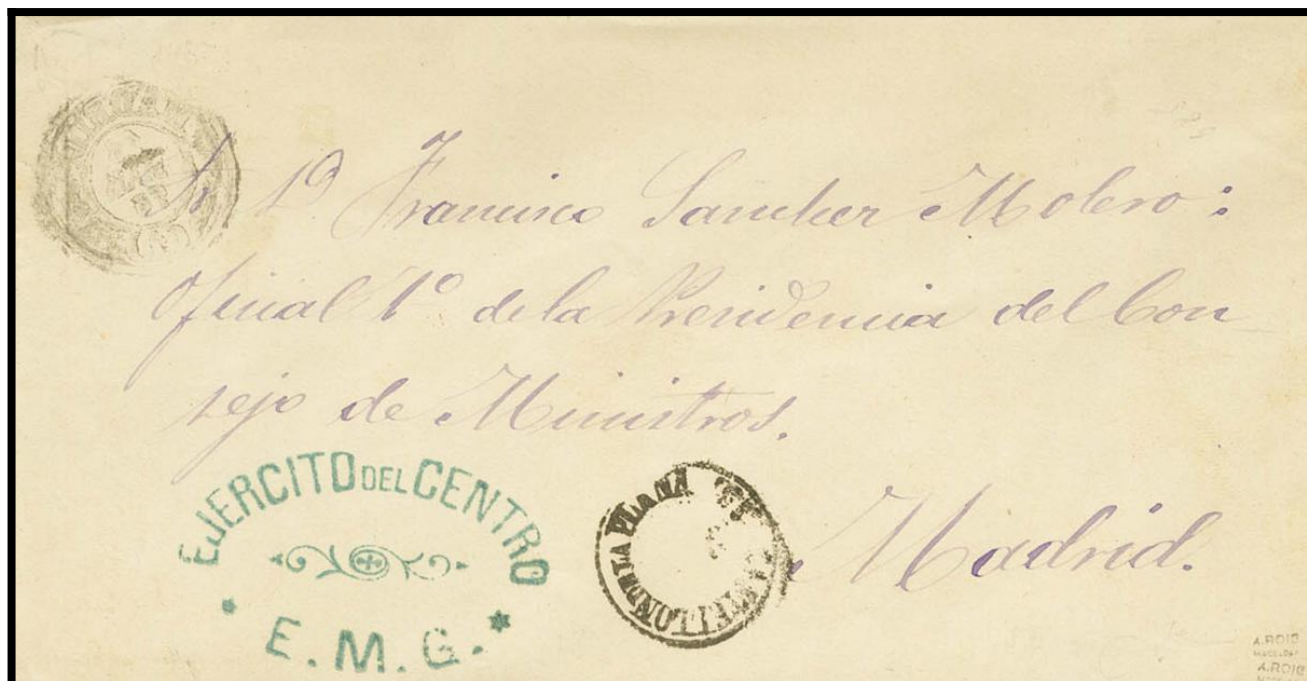 Sr. Dº Francisco Sanchez Molero:
Oficial 1º de la Presidencia del Con
sejo de Ministros.
Madrid.
EJERCITO DEL CENTRO
E. M. G.
CASTELLON DE LA PLANA
A. ROIG
A. ROIG